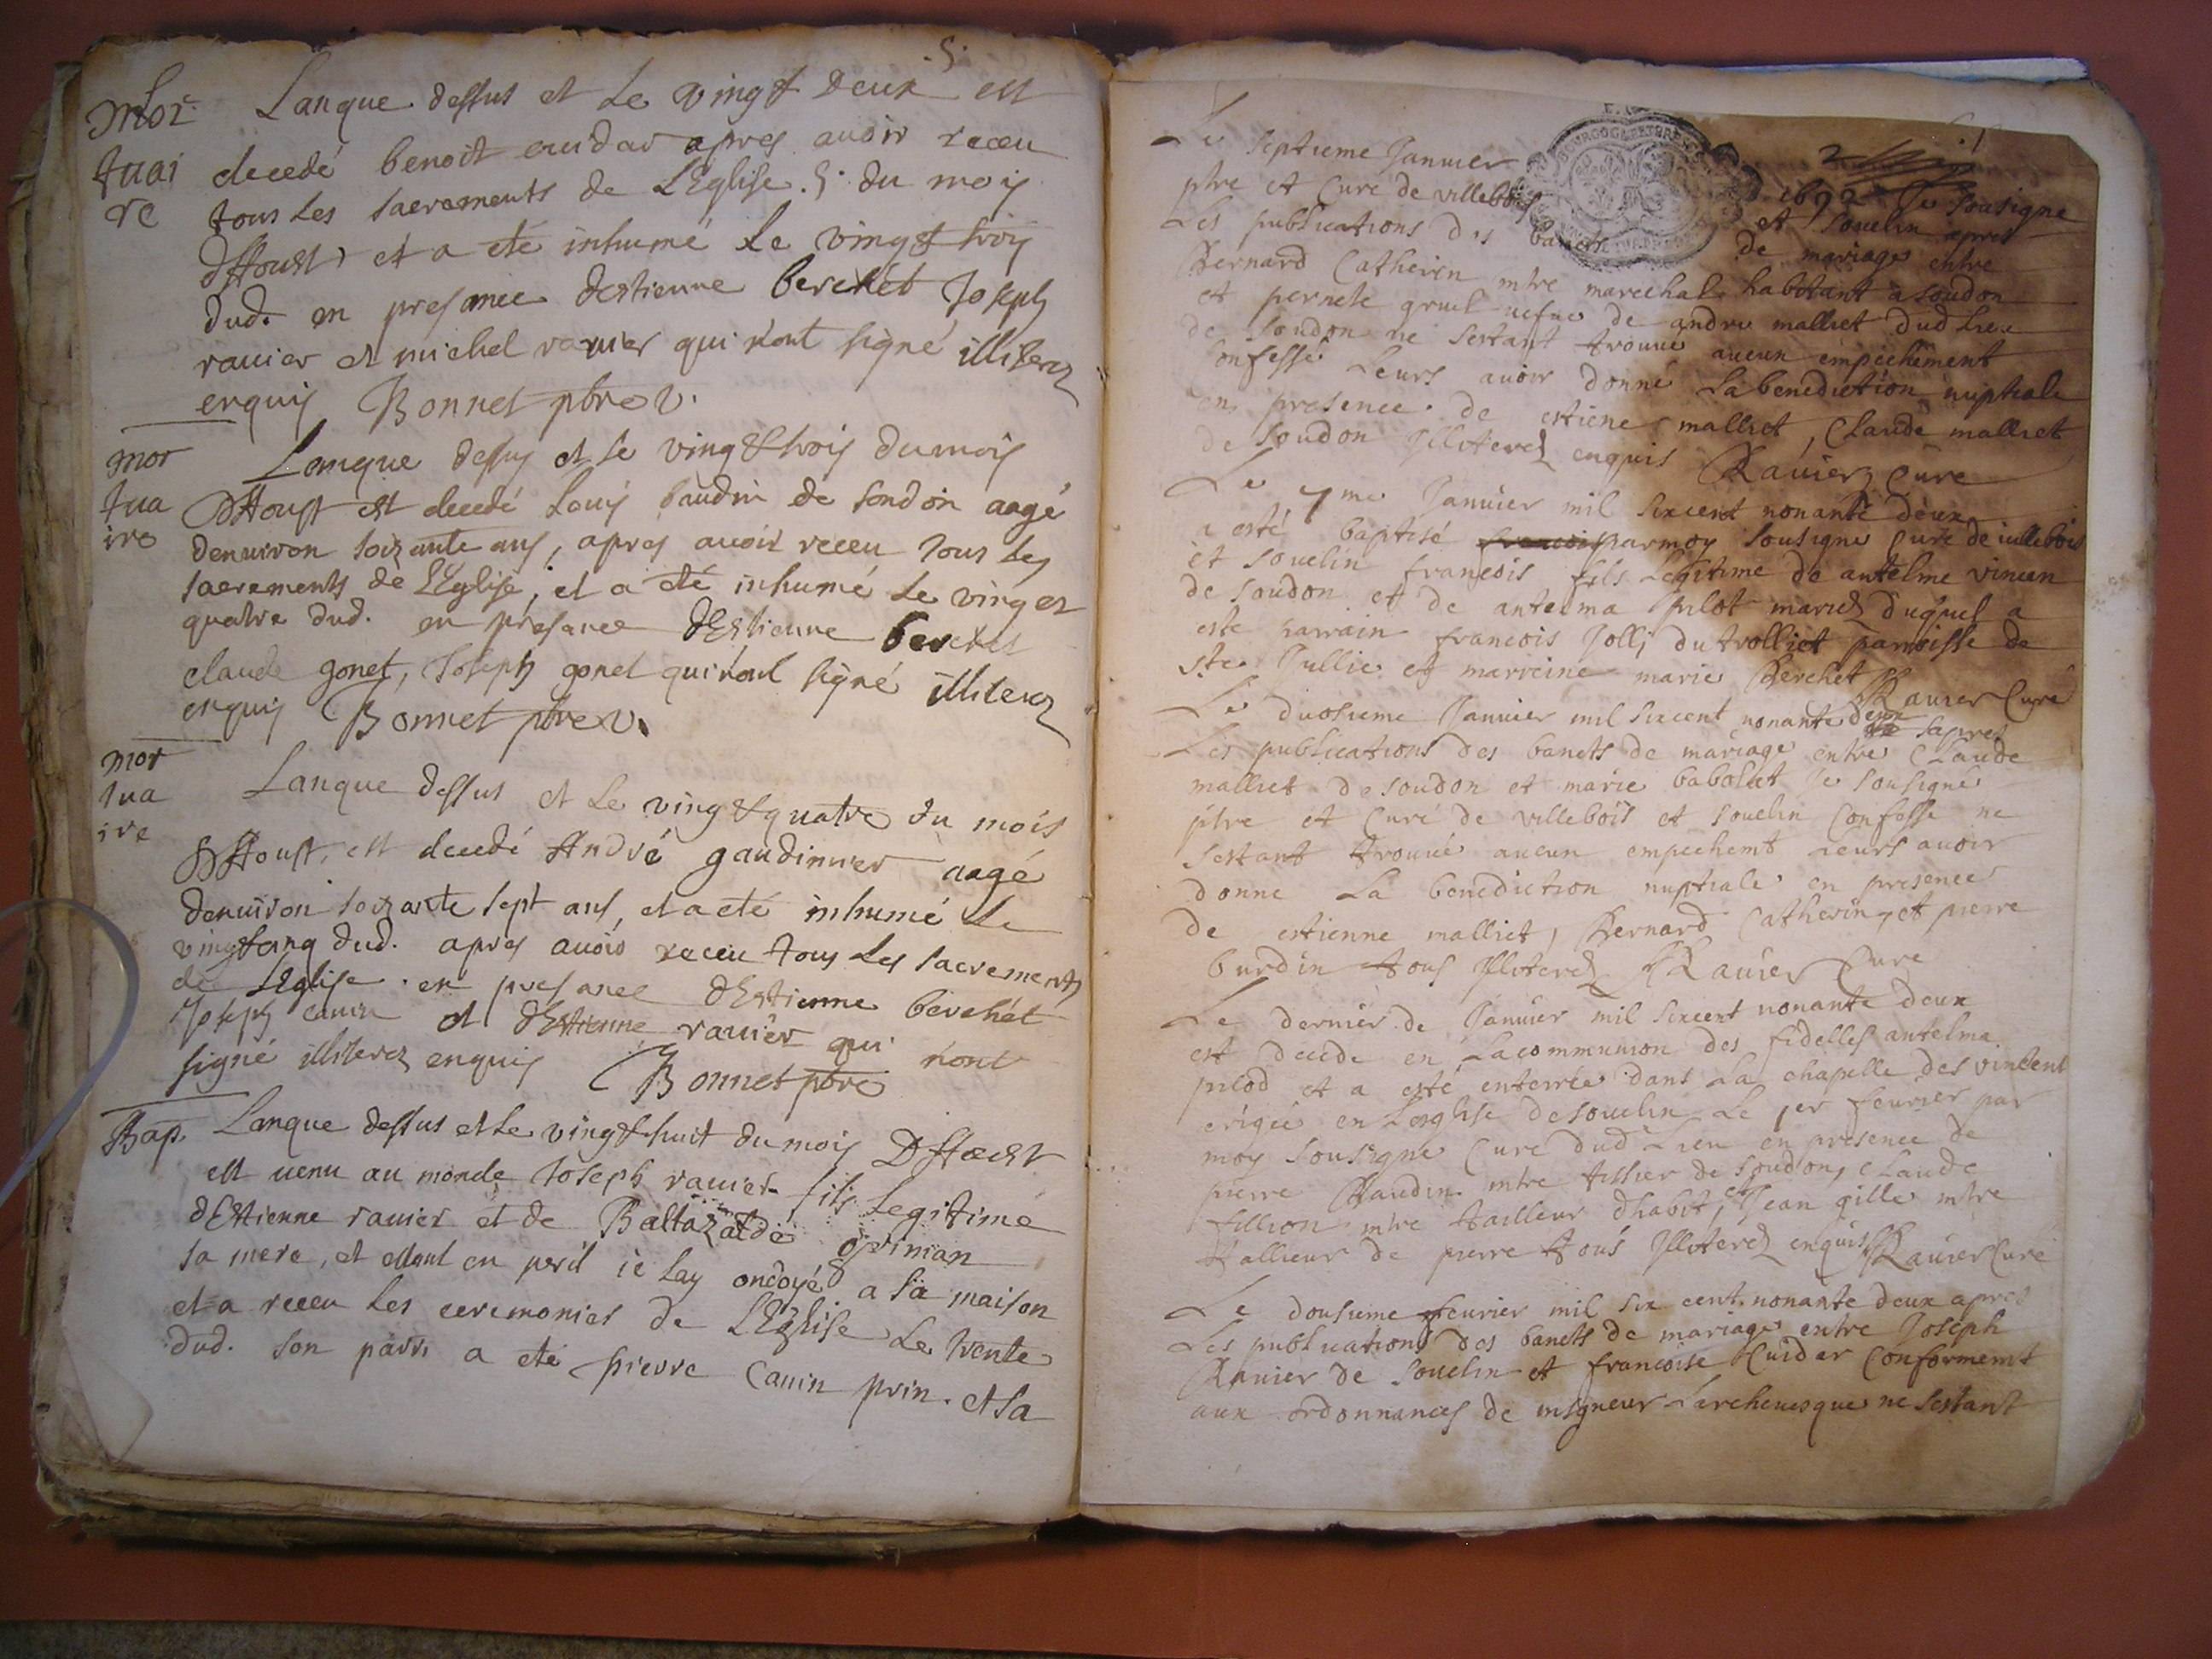 5.
Mor Lanque dessus et Le vingt Deux est
tuai decedé benoit cuidar apres auoir receu
re tous Les sacrements de LEglise. 5. du moy
dAoust, et a eté inhumé Le vingt troiy
dud. en presance destienne berchet Joseph
rauier et michel rauier qui n'ont signé illiterez
enquiy Bonnet pbre v.
mor Lanque dessuy et Le vingt troiy du moiy
tua dAoust est decedé Louiy baudin de soudon aagé
ire denuiron soixante ans, apres auoir receu tous Les
sacrements de LEglise, et a eté inhumé Le vingt et
quatre dud. en presance dEstienne berchet
claude gonet, Joseph gonet qui n'ont signé illiterez
enquiy Bonnet pbre v.
mor Lanque dessus et Le vingt quatre du mois
tua dAoust, est decedé André gaudinier aagé
ire denuiron soixante sept ans, et a eté inhumé Le
vingt cinq dud. apres auoir receu tous Les sacrements
de LEglise. en presance dEstienne berchet
Joseph cauin et dEstienne rauier qui n'ont
signé illiterez enquiy Bonnet pbre
Bap. Lanque dessus et Le vingt huit du moiy DAoust
est uenu au monde Joseph rauier fils Legitime
dEstienne rauier et de Baltazarde
sa mere, et estant en peril ie Lay ondoyé a sa maison
et a receu Les ceremonies de LEglise Le trente
dud. son parr. a eté pierre Cauin prin. et sa
2
Le septieme Januier 1692 Je sousigne
ptre et Curé de villebois et souclin apres
Les publications des bancts de mariage entre
Bernard Catherin mtre marechal habitant a soudon
et pernete gruel uefue de andre malliet dud Lieu
de soudon ne sestant trouué aucun empechement
Confessé Leurs auoir donné La benediction nuptiale
en presence de estiene malliet, Claude malliet
de soudon Illiterez enquis Rauier Cure
Le 7me Januier mil sixcent nonante deux
a esté baptisé francois par moy sousigné Curé de uillebois
et souclin francois fils Legitime de antelme vincen
de soudon et de antelma pilot mariez duquel a
esté parrain francois Jolli du trolliet parroisse de
ste Jullie et marreine marie Berchet Rauier Curé
Le duosieme Januier mil sixcent nonante deux apres
Les publications des bancts de mariage entre Claude
malliet de soudon et marie babolat Je sousigné
ptre et Curé de villebois et souclin Confesse ne
sestant trouué aucun empechemt Leurs auoir
donne La benediction nuptiale en presence
de estienne malliet, Bernard Catherin, et pierre
burdin tous Illiterez Rauier Cure
Le dernier de Januier mil sixcent nonante deux
est decede en La communion des fidelles antelma
pilod et a esté enterrée dans La chapelle des vincent
erigée en Lesglise de souclin Le 1er feurier par
moy sousigné Curé dud Lieu en presence de
pierre Baudin mtre tissier de soudon, Claude
fillion mtre tailleur dhabit, et Jean gille mtre
tallieur de pierre tous Illiterez enquis Rauier Curé
Le dousieme feurier mil six cent nonante deux apres
Les publications des bancts de mariage entre Joseph
Rauier de souclin et francoise Cuidar Conformemt
aux ordonnances de msgneur Larcheuesque ne sestant